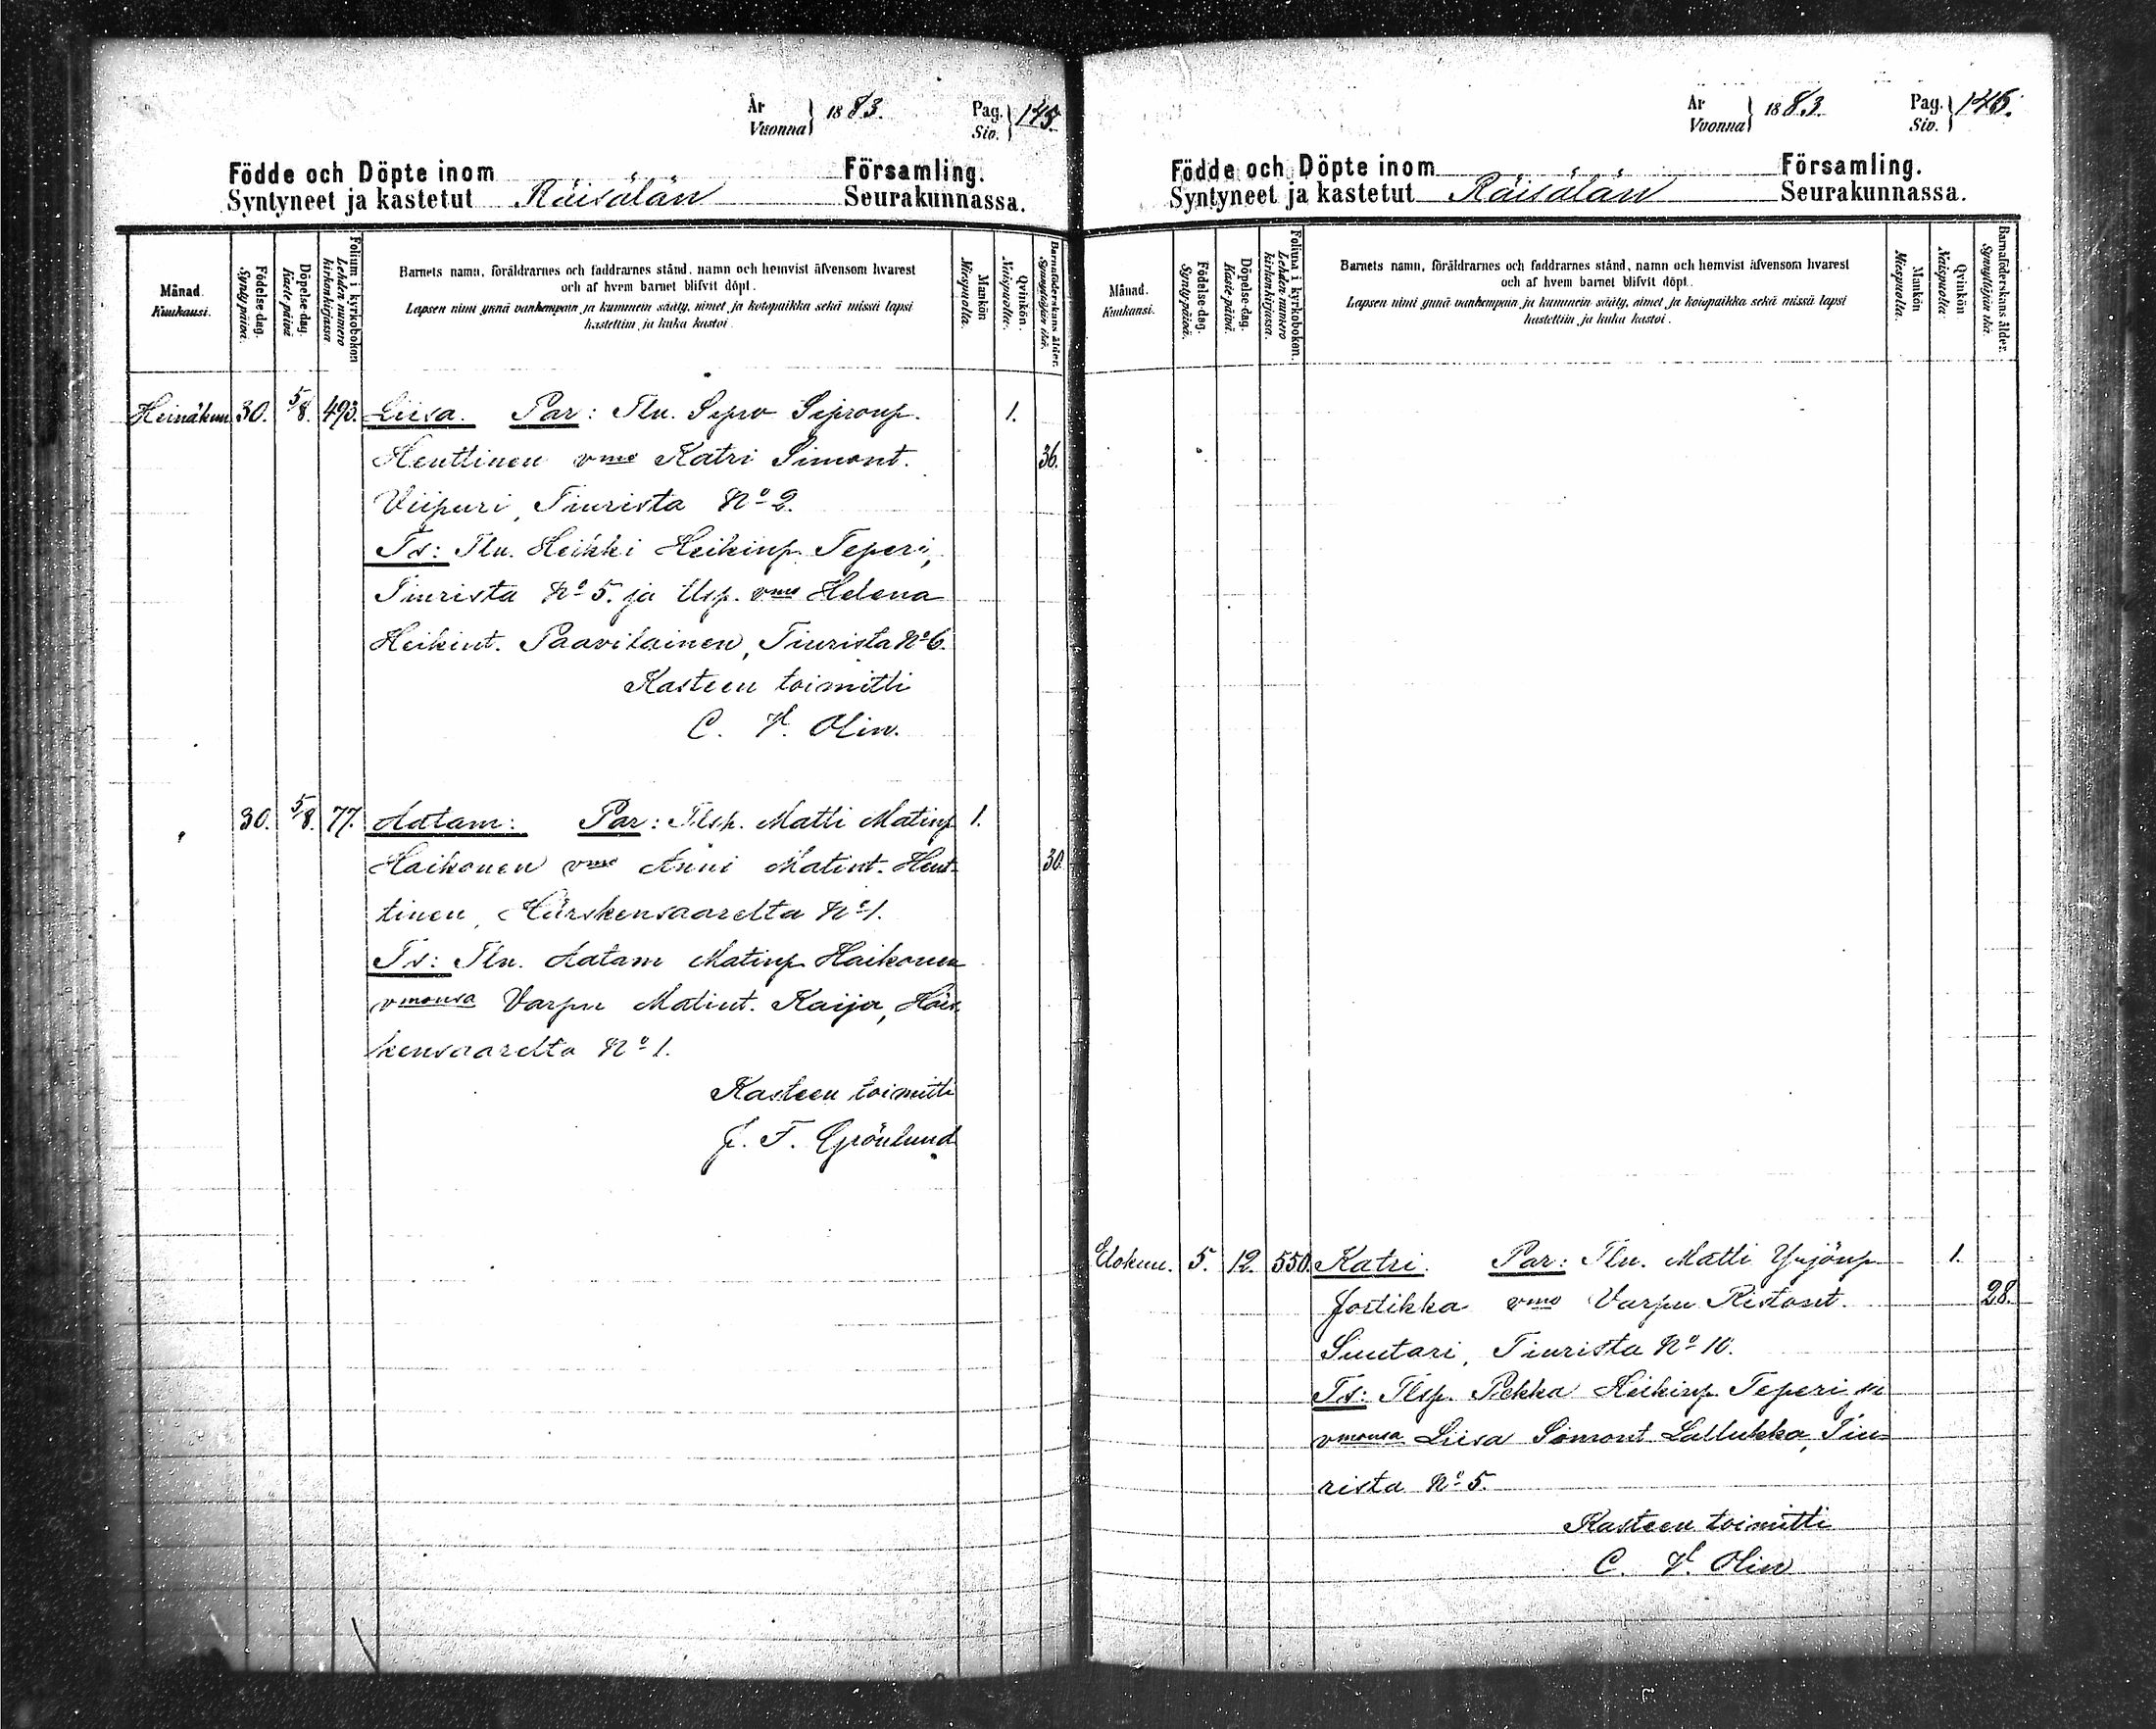 År
Vuonna } 1883.
Pag.
Siv. } 145.
Födde och Döpte inom Församling.
Syntyneet ja kastetut Räisälän Seurakunnassa.
Månad. Kuukausi.
Födelse-dag. Synty-päivä.
Döpelse-dag. Kaste-päivä
Folium i kyrkoboken Lehden numero kirkonkirjassa
Barnets namn, föräldrarnes och faddrarnes stånd, namn och hemvist äfvensom hvarest
och af hvem barnet blifvit döpt.
Lapsen nimi ynnä vanhempain ja kummein sääty, nimet ja kotopaikka sekä missä lapsi
kastettiin ja kuka kastoi.
Mankön Miespuolta.
Qvinkön. Naispuolta.
Barnaföderskans ålder. Synnyttäjän ikä.
Heinäkuu 30. 5/8. 493. Liisa. Par: Tln. Sipro Siproup. 1.
Henttinen vmo Katri Simont. 36.
Viipuri, Tiurista No 2.
Ts: Tln. Heikki Heikinp. Teperi,
Tiurista No 5. ja Usp. vmo Helena
Heikint. Paavilainen, Tiurista No 6.
Kasteen toimitti
C. V. Olin.
30. 5/8. 77. Aatam: Par: Tlsp. Matti Matinp 1.
Haikonen vmo Anni Matint. Hent- 30.
tinen, Härskensaarelta No 1.
Ts: Tln. Aatam Matinp Haikonen
vmonsa Varpu Matint. Kaija, Härs-
kensaarelta No 1.
Kasteen toimitti
J. F. Grönlund
År
Vuonna } 1883.
Pag.
Siv. } 146.
Födde och Döpte inom Församling.
Syntyneet ja kastetut Räisälän Seurakunnassa.
Månad. Kuukausi.
Födelse-dag. Synty-päivä.
Döpelse-dag. Kaste-päivä.
Folium i kyrkoboken. Lehden numero kirkonkirjassa.
Barnets namn, föräldrarnes och faddrarnes stånd, namn och hemvist äfvensom hvarest
och af hvem barnet blifvit döpt.
Lapsen nimi ynnä vanhempain ja kummein sääty, nimet ja kotopaikka sekä missä lapsi
kastettiin ja kuka kastoi.
Mankön Miespuolta.
Qvinkön Naispuolta
Barnaföderskans ålder. Synnyttäjän ikä.
Elokuu. 5. 12. 550. Katri. Par: Tln. Matti Yrjönp 1.
Jortikka vmo Varpu Ristont. 28.
Suutari, Tiurista No 10.
Ts: Tlsp. Pekka Heikinp. Teperi ja
vmonsa Liisa Simont Lallukka, Tiu-
rista No 5.
Kasteen toimitti
C. V. Olin